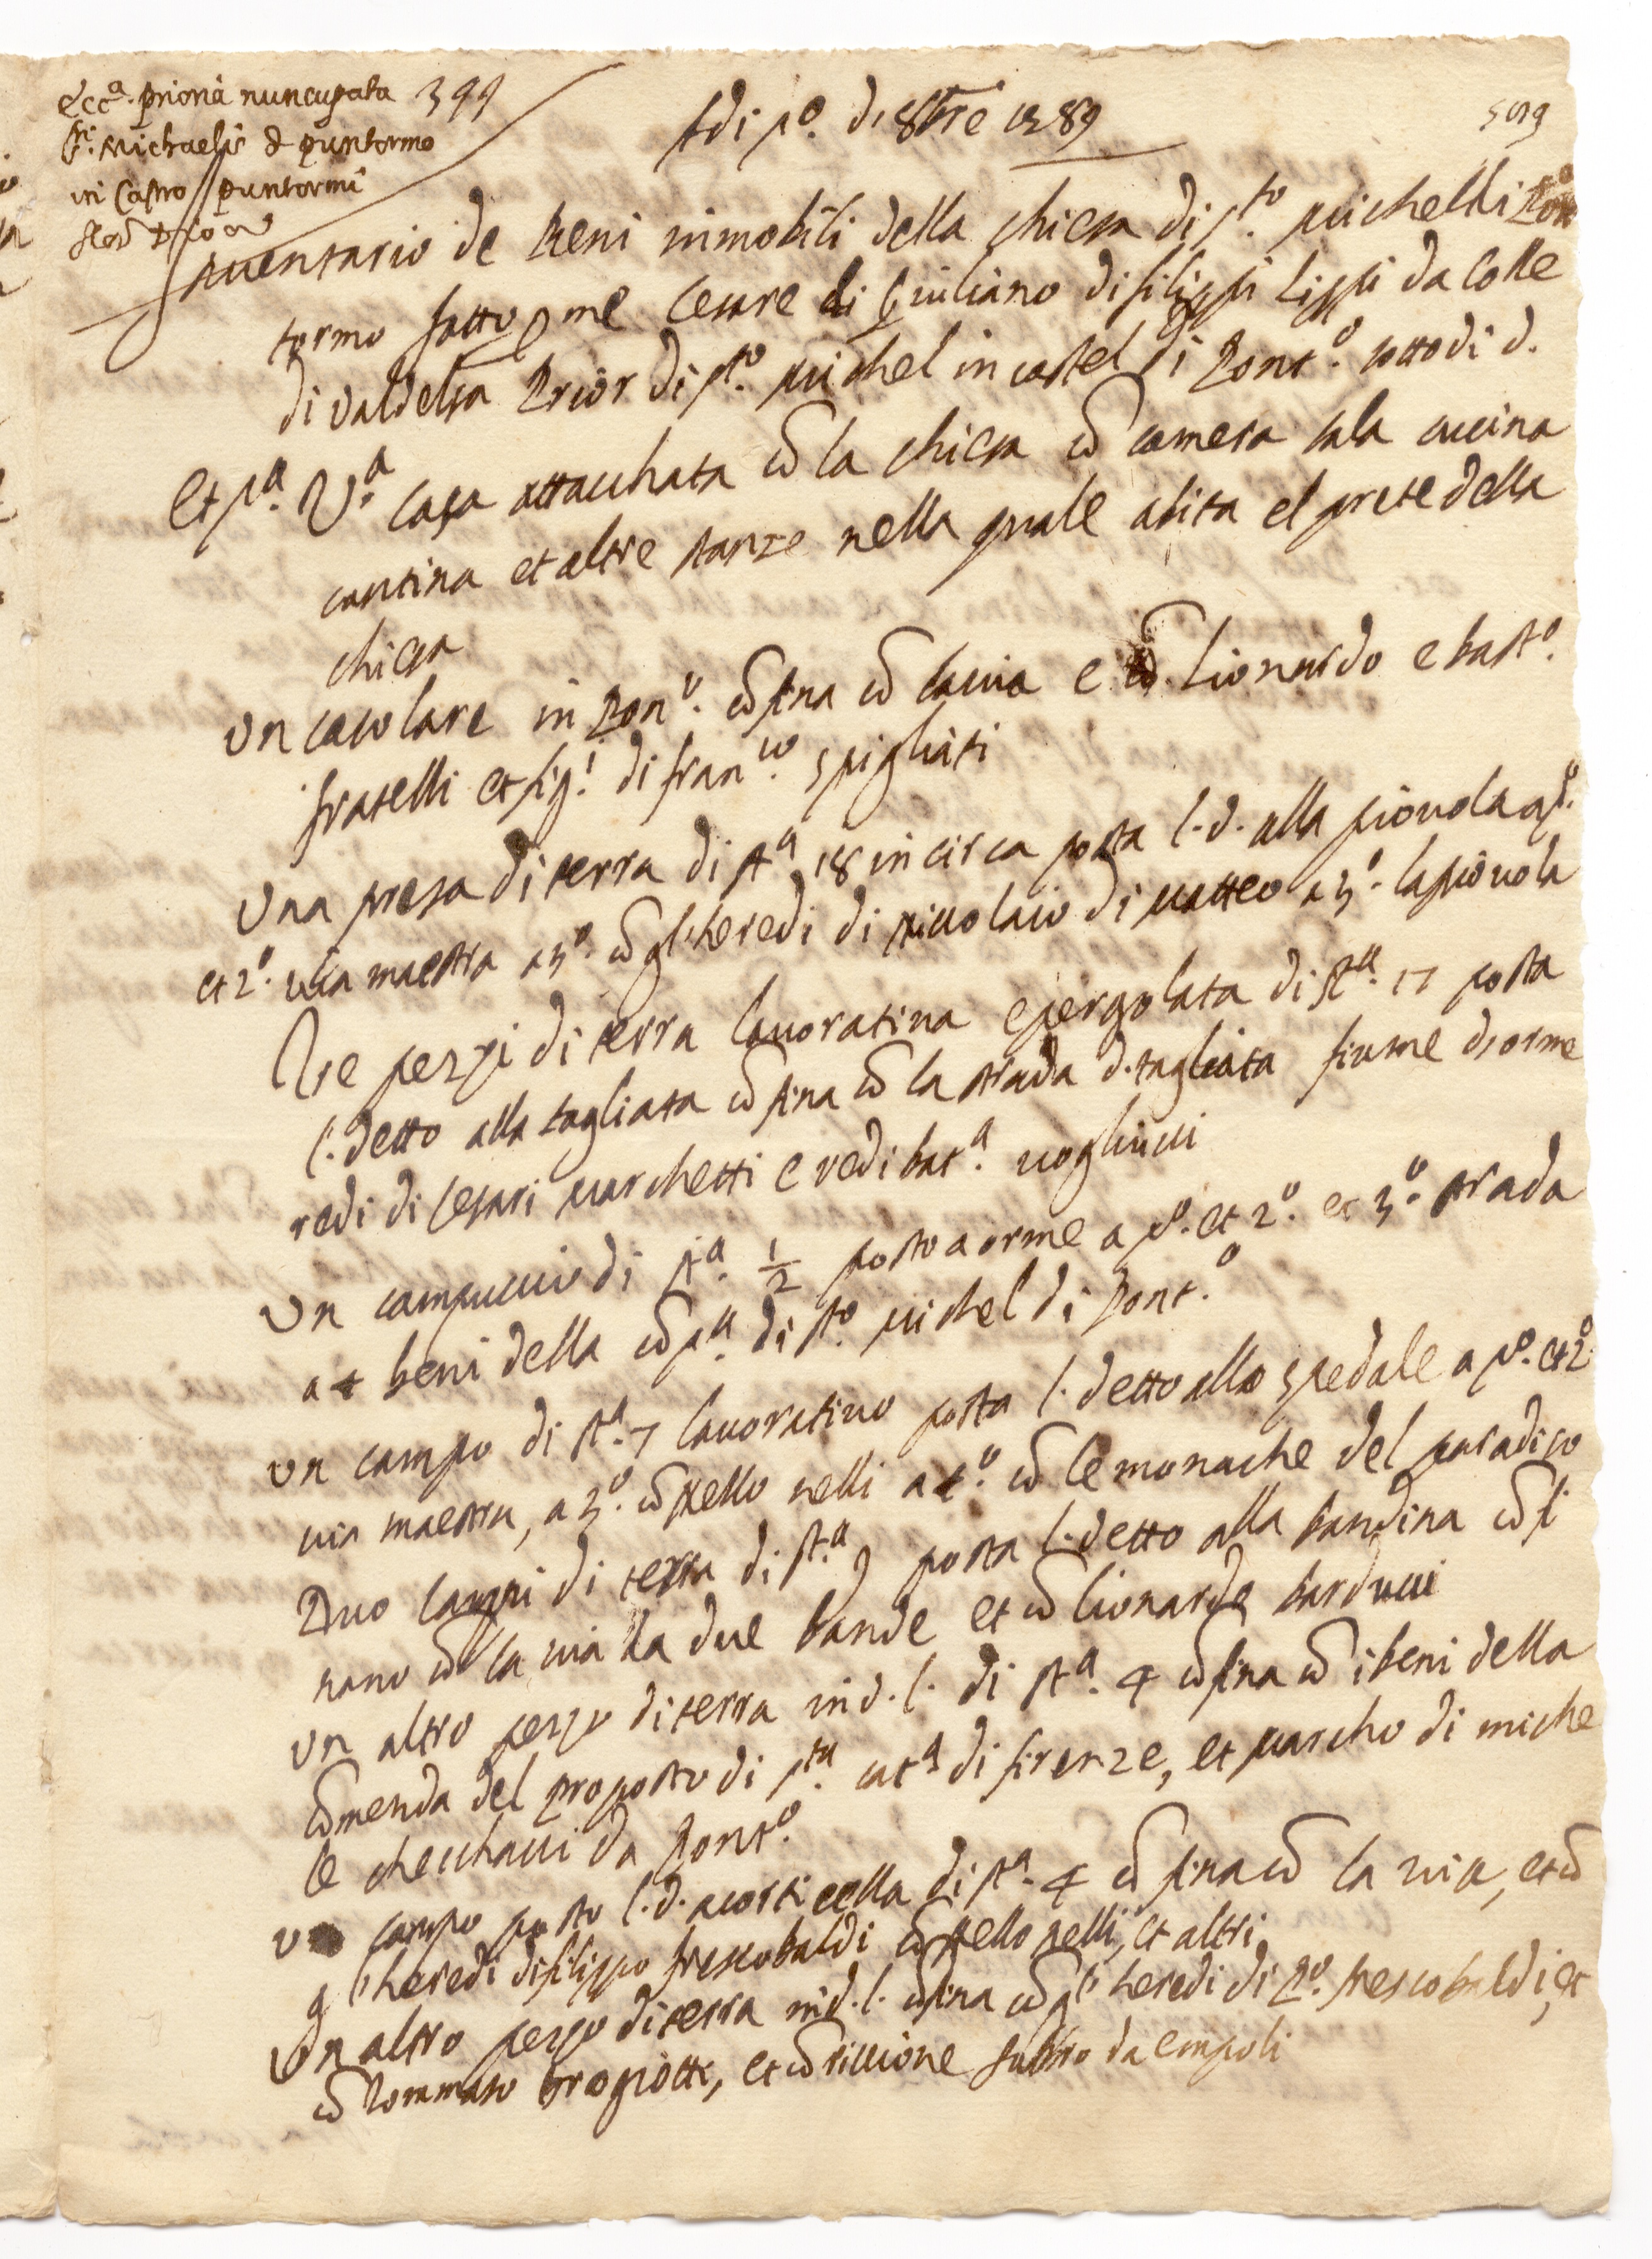 Ecc.a prioria nuncupata 399
S.ti Michaelis d puntormo
in Castro puntormi
Adi p.o d. 8bre 1589
Inventario de Beni inmobili della chiesa di s.to michelli Pon
tormo fatto p me Cesare di Giuliano di filippi Lippi da Colle
di valdelsa Prior di s.to michel in castel di Pont.o sotto di d.
Et p.a Un.a casa attacchata cō la chiesa cō camera sala cucina
cantina et altre stanze nella quale abita el prete della
chiesa
Un casolare in Pon.o cōfina cō la via e cō Lionardo e bast.o
fratelli et fig.i di fran.co spigliati
Una presa di terra di st.a 18 in circa posta l. d. alla piovola a p.o
et 2.o via maestra a 3.o cō gl'heredi di niccolaio di matteo a 3.o la piovola
Tre pezzi di terra lavoratina e pergolata di st.a 17 posta
l. detto alla tagliata cōfina cō la strada d. tagliata fiume d'orme
redi di Cesari marchetti e redi bat.a
Un campuccio di st.a 1/2 posto a orme a p.o et 2.o et 3.o strada
a 4 beni della cōp.a di s.to michel di Pont.o
Un campo di st.a 7 lavorativo posta l. detto allo spedale a p.o et 2.o
via maestra, a 3.o cō nello nelli a 4.o cō le monache del paradiso
Duo campi di terra di st.a 9 posta l. detto alla bandina cōfi
nano cō la via da due bande et cō lionardo barducci
Un altro pezzo di terra in d. l. di st.a 4 cōfina cō i beni della
cōmenda del proposto di s.ta cat.a di firenze, et marcho di miche
le checchacci da Pont.o
Un campo posto l. d. a corticella di st.a 4 cōfina cō la via, et cō
gl'heredi di filippo frescobaldi cō nello nelli, et altri
Un altro pezzo di terra in d. l. cōfina cō gl'heredi di P.o frescobaldi, et
cō Tommaso brogiotti, et cō riccione fabbro da empoli